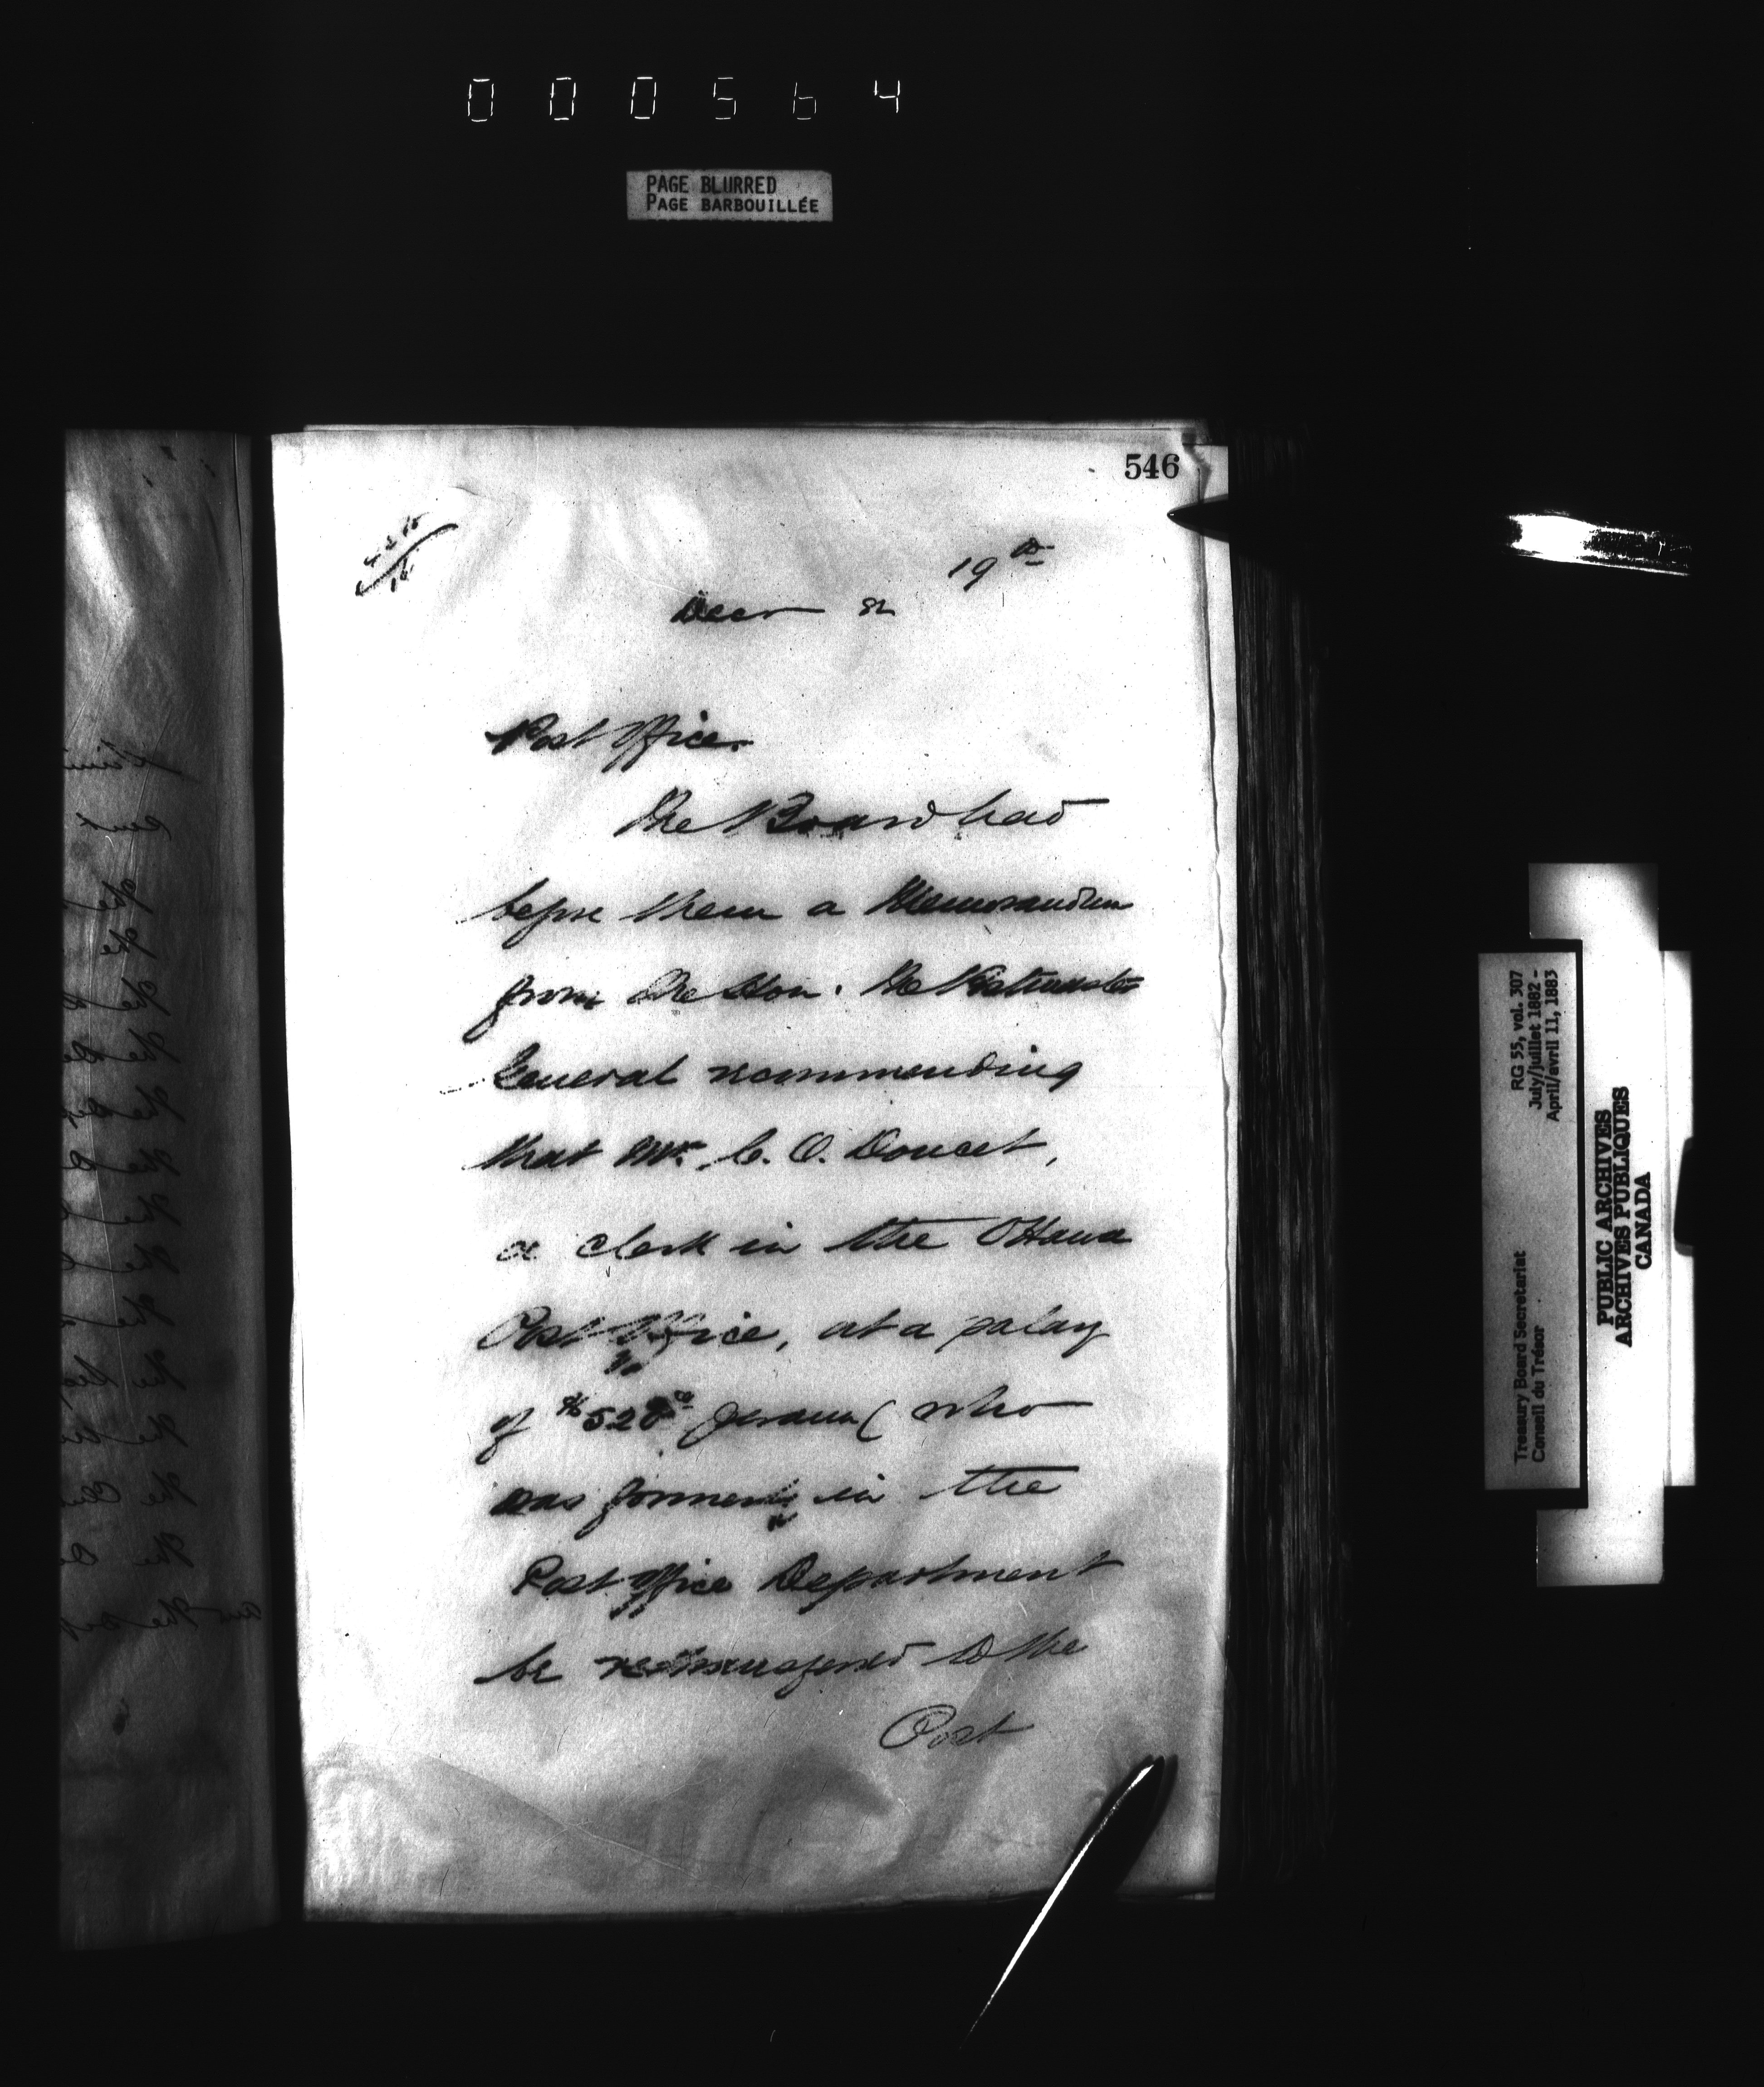 000564
PAGE BLURRED
PAGE BARBOUILLÉE
546
19th
Decr 82
Post Office.
The Board had
before them a Memorandum
from the Hon. the Postmaster
General recommending
that Mr. C. O. Doucet,
a clerk in the Ottawa
Post Office, at a salary
of $520 00 per ann ( who
was formerly in the
Post Office Department
be retransferred to the
Post
RG 55, vol. 307
July/juillet 1882 -
April/avril 11, 1883
Treasury Board Secretariat
Conseil du Trésor
PUBLIC ARCHIVES
ARCHIVES PUBLIQUES
CANADA